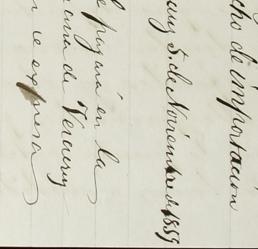 cho de importacion
cruz 5. de Noviembre de 1859
pagará en la
de Veracruz
expresa